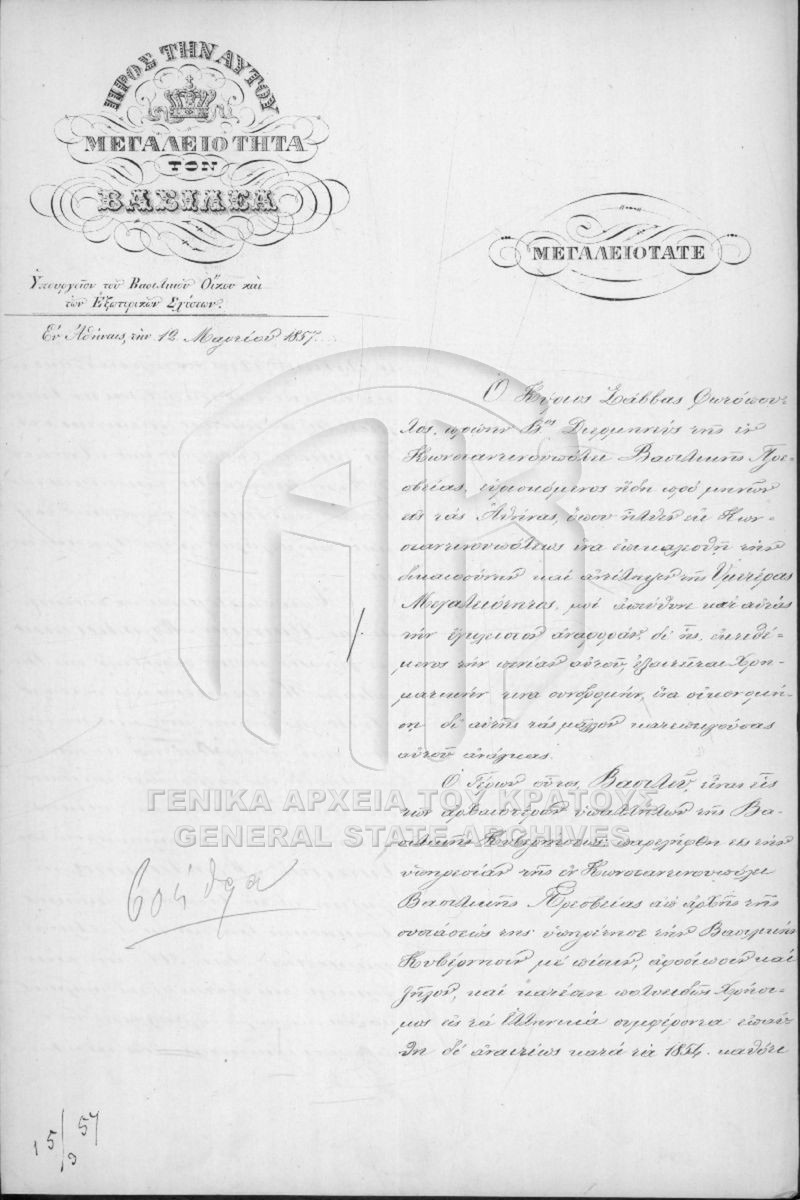 ΠΡΟΣ ΤΗΝ ΑΥΤΟΥ
ΜΕΓΑΛΕΙΟΤΗΤΑ
ΤΟΝ
ΒΑΣΙΛΕΑ
Ὑπουργεῖον τοῦ Βασιλικοῦ Οἴκου καὶ
τῶν Ἐξωτερικῶν Σχέσεων.
Ἐν Ἀθήναις, τὴν 12 Μαρτίου 1857.
ΜΕΓΑΛΕΙΟΤΑΤΕ
Ὁ Κύριος Σάββας Φωτόπου-
λος, πρώην Βος Διερμηνεὺς τῆς ἐν
Κωνσταντινουπόλει Βασιλικῆς Πρε-
σβείας, εὑρισκόμενος ἤδη πρὸ μηνῶν
εἰς τὰς Ἀθήνας, ὅπου ἦλθεν ἐκ Κων-
σταντινουπόλεως ἵνα ἐπικαλεσθῇ τὴν
δικαιοσύνην καὶ ἀντίληψιν τῆς Ὑμετέρας
Μεγαλειότητος, μοὶ ἀπηύθυνε κατ' αὐτὰς
τὴν ἔγκλειστον ἀναφοράν, δι' ἧς, ἐκτιθέ-
μενος τὴν πενίαν αὐτοῦ, ἐξαιτεῖται χρη-
ματικήν τινα συνδρομήν, ἵνα οἰκονομή-
σῃ δι' αὐτῆς τὰς μᾶλλον κατεπειγούσας
αὐτοῦ ἀνάγκας.
Ὁ Γέρων οὗτος, Βασιλεῦ, εἶναι εἷς
τῶν ἀρχαιοτέρων ὑπαλλήλων τῆς Βα-
σιλικῆς Κυβερνήσεως· παρελήφθη εἰς τὴν
ὑπηρεσίαν τῆς ἐν Κωνσταντινουπόλει
Βασιλικῆς Πρεσβείας ἀπ' ἀρχῆς τῆς
συστάσεώς της ὑπηρέτησε τὴν Βασιλικὴν
Κυβέρνησιν μὲ πίστιν, ἀφοσίωσιν καὶ
ζῆλον, καὶ κατέστη πολυειδῶς χρήσι-
μος εἰς τὰ Ἑλληνικὰ συμφέροντα ἐπαύ-
θη δὲ ἀναιτίως κατὰ τὰ 1854. καθότι
15/3 57
ΓΕΝΙΚΑ ΑΡΧΕΙΑ ΤΟΥ ΚΡΑΤΟΥΣ
GENERAL STATE ARCHIVES